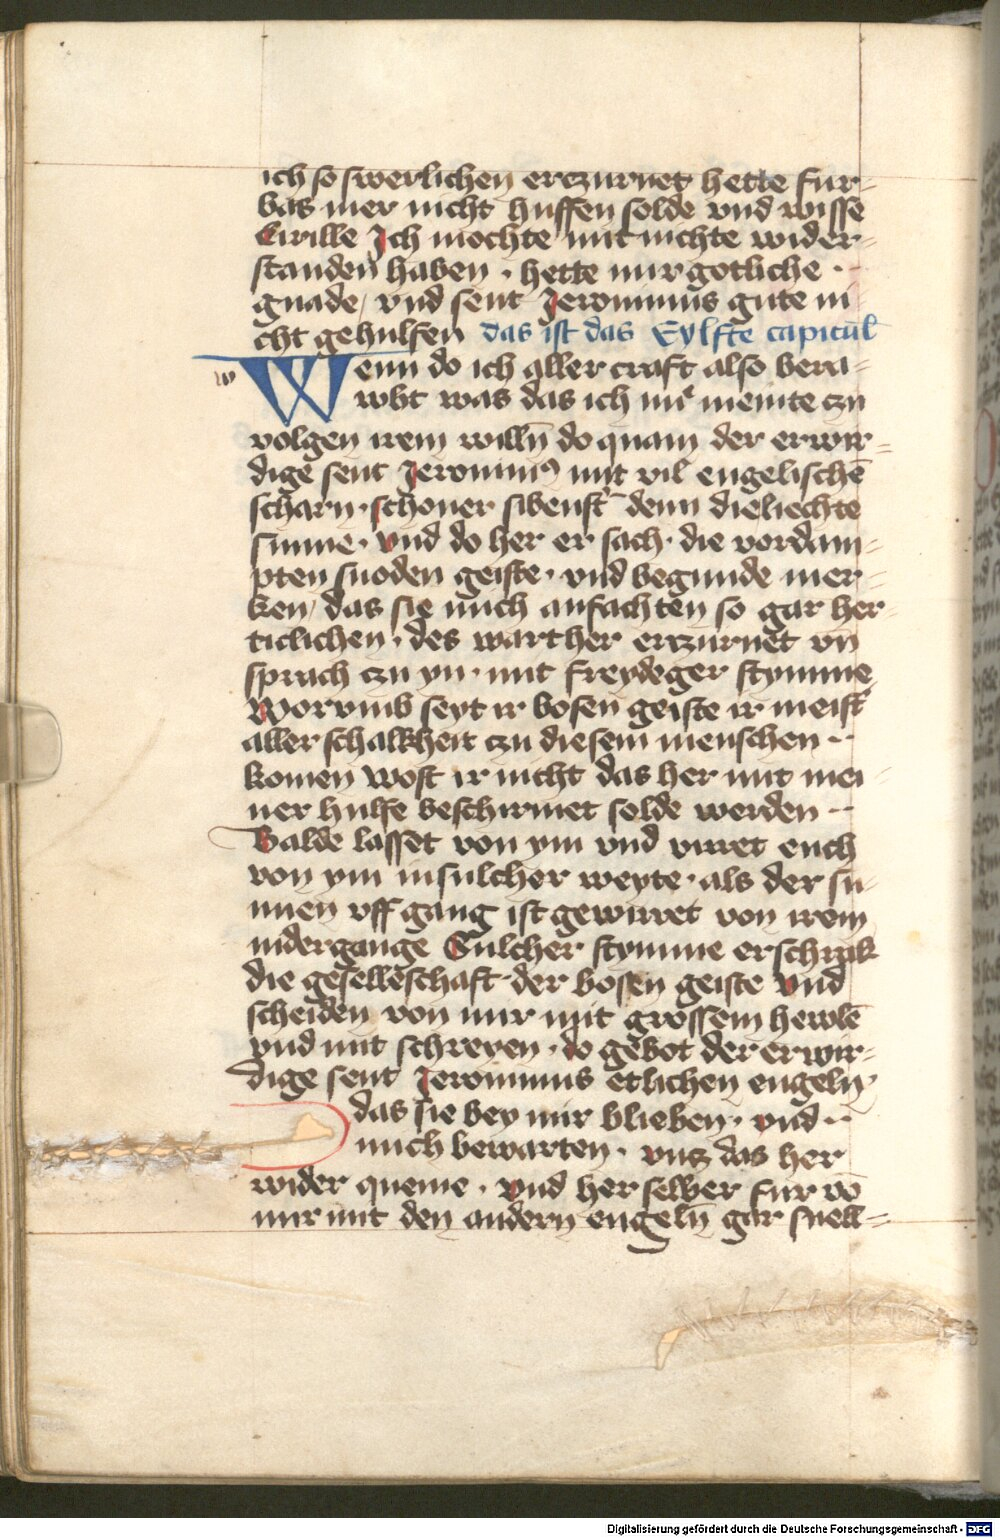 ich so swerlichen erczurnet hette fur-
bas mer nicht huffen solde vnd wisse
Cirille Ich mochte mit nichte wider-
standen haben · hette mir gotliche ·
gnade / vnd sent Jeronimus gute ni
cht gehulfen das ist das Eylfte capitul
w
Wenn do ich aller craft also bera-
wbt was das ich nu meinte czu
volgen irem willn̄ do quam der erwir-
dige sent Jeronim9 mit vil engelischē
scharn · schoner sibenst denn die liechte
sunne · vnd do her er sach · die vordam-
pten snoden geiste · vnd begunde mer-
ken / das sie mich anfachten so gar her-
ticlichen · des wart her erczurnet vn̄
sprach czu yn · mit freydeger stymme
Worvmb seyt ir bosen geiste ir meist
aller schalkheit czu diesem menschen ··
komen wost ir nicht das her mit mei-
ner hulfe beschirmet solde werden ··
Balde lasset von ym vnd virret euch
von ym in sulcher weyte · als der su-
nnen vff gang ist gewirret von irem
nidergange Sulcher stymme erschrak
die geselleschaft der bosen geiste vnd
scheiden von mir mit grossem hewlē
vnd mit schreyen · do gebot der erwir-
dige sent Jeronimus etlichen engeln ·
das sie bey mir blieben · vnd ··
mich bewarten · vncz das her
wider queme · vnd her selber fur vō
mir mit den andern engeln̄ gar snell-
Digitalisierung gefördert durch die Deutsche Forschungsgemeinschaft - DFG